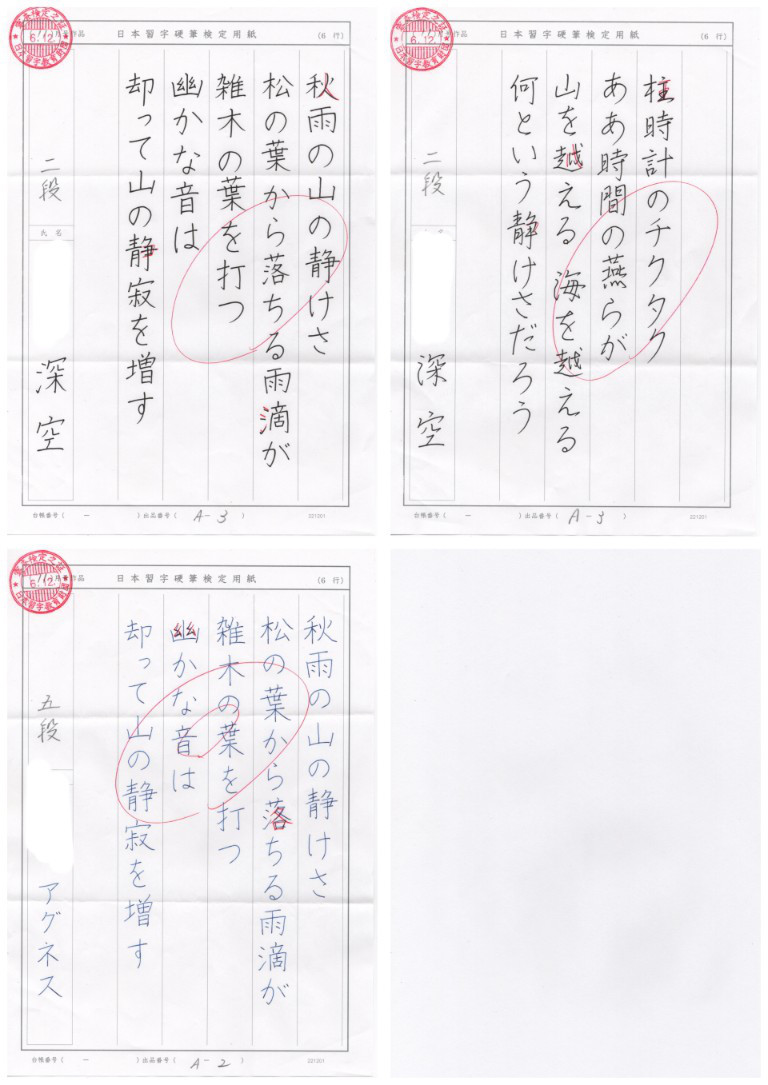 日本習字硬筆検定用紙
(6 行)
秋雨の山の静けさ
松の葉から落ちる雨滴が
雑木の葉を打つ
幽かな音は
却って山の静寂を増す
二段
氏名
深空
台帳番号( ー )出品番号( A-3 )
221201
6.12.
日本習字教育財団
日本習字硬筆検定用紙
(6 行)
柱時計のチクタク
ああ時間の燕らが
山を越える 海を越える
何という静けさだろう
二段
深空
台帳番号( ー )出品番号( A-3 )
221201
6.12.
日本習字教育財団
日本習字硬筆検定用紙
(6 行)
秋雨の山の静けさ
松の葉から落ちる雨滴が
雑木の葉を打つ
幽かな音は
却って山の静寂を増す
五段
アグネス
台帳番号( ー )出品番号( A-2 )
221201
6.12.
日本習字教育財団